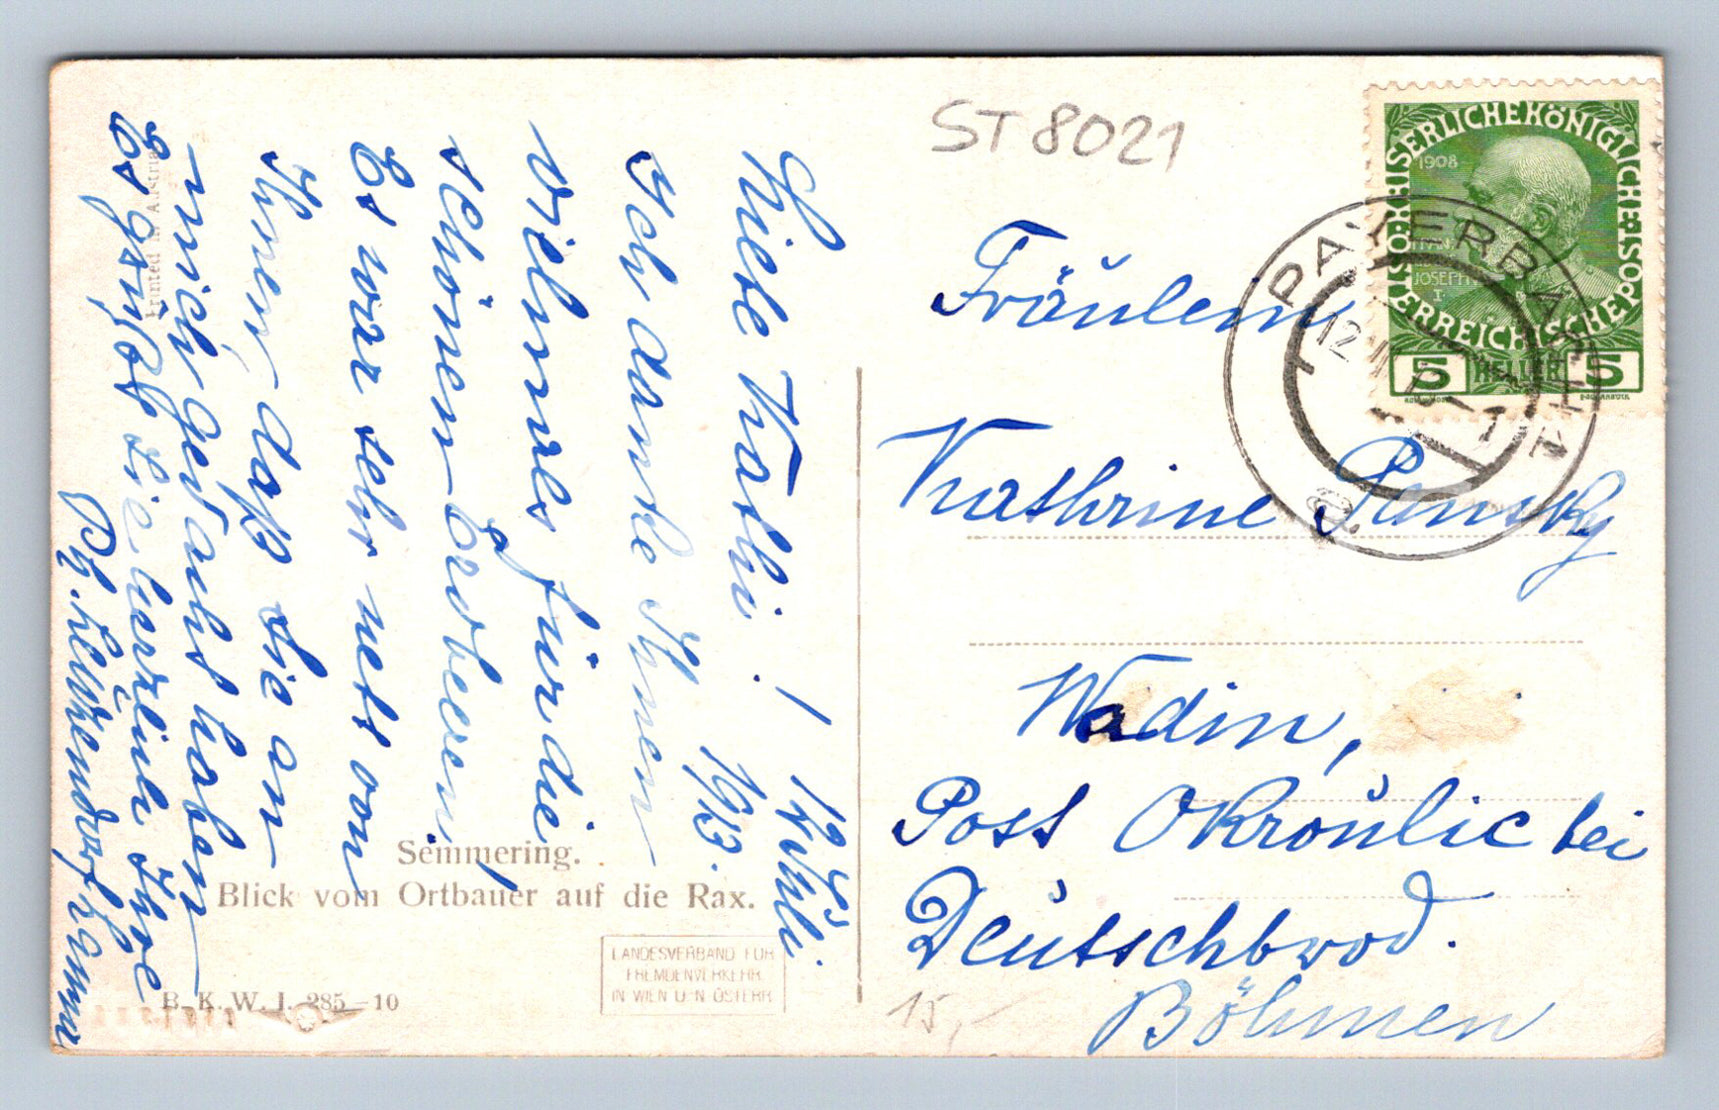 ST 8021
KAISERLICHEKÖNIGLICHE ÖSTERREICHISCHE POST
1908
FRANZ
JOSEPH
I.
5 HELLER 5
PAYERBACH
12
Fräulein
Kathrine Pansky
Wadin,
Post Okroŭlic bei
Deŭtschbrod.
Böhmen
15,-
12. Jŭli
1913.
Liebe Kathi!
Ich danke Ihnen
vielmals für die
schönen Erdbeeren!
Es war sehr nett von
Ihnen, daß Sie an
mich gedacht haben
Es grüßt Sie herzlich Ihre
Printed in Austria
Semmering.
Blick vom Ortbauer auf die Rax.
LANDESVERBAND FÜR
FREMDENVERKEHR
IN WIEN U. N. ÖSTERR.
B. K. W. I. 285-10